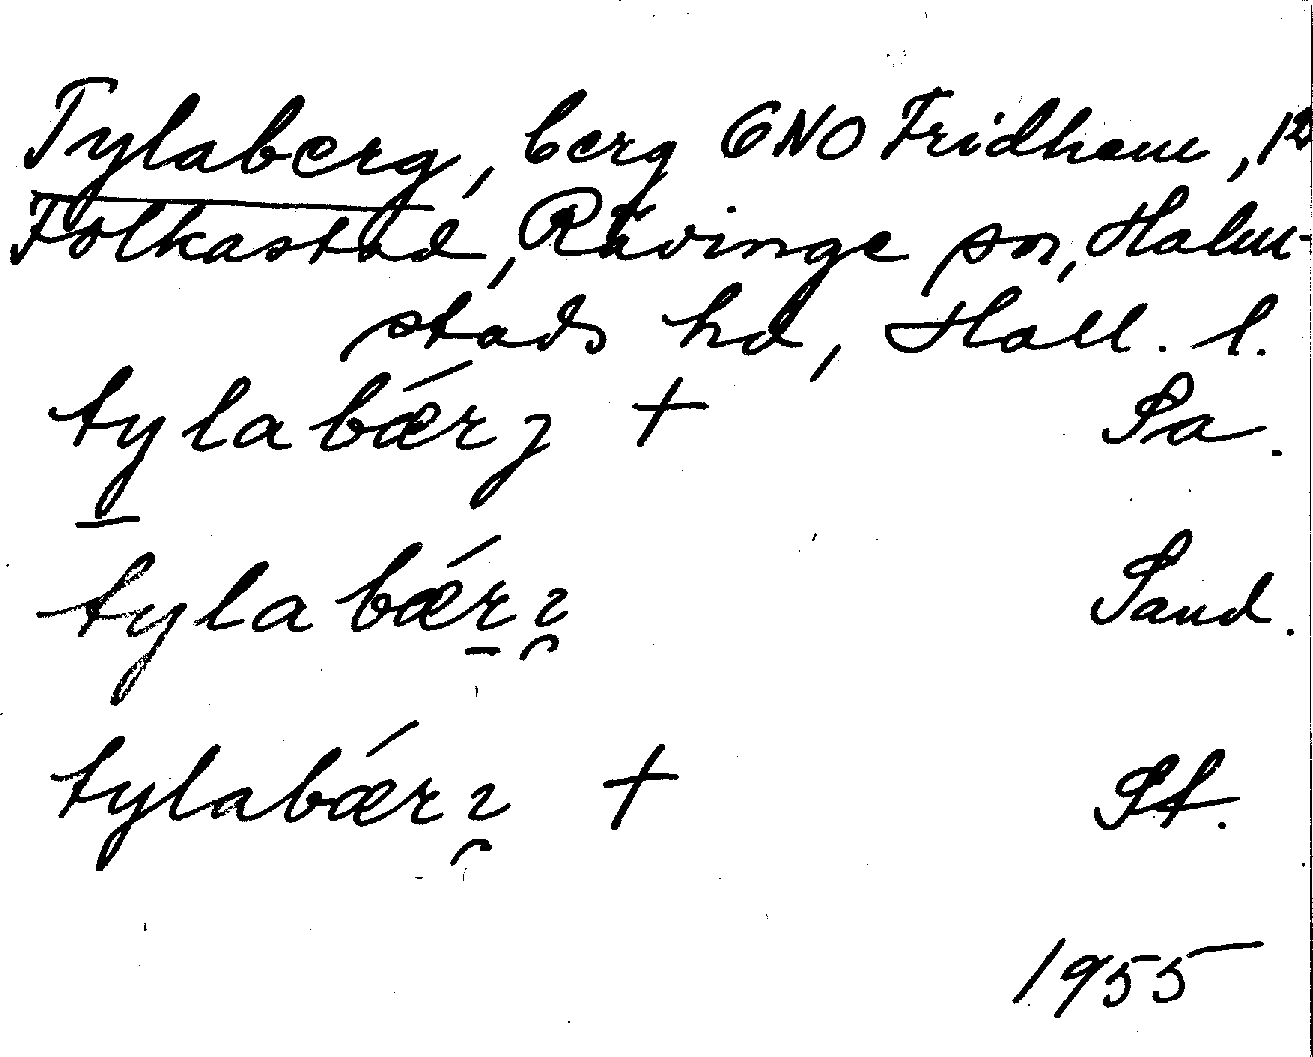 Tylaberg, berg ONO Fridhem, 1²
Folkastad, Rävinge sn, Halm-
stads hd, Hall. l.
tylabǽrj + Sa.
tylabǽrɿ Sand.
tylabǽrɿ + St.
1955